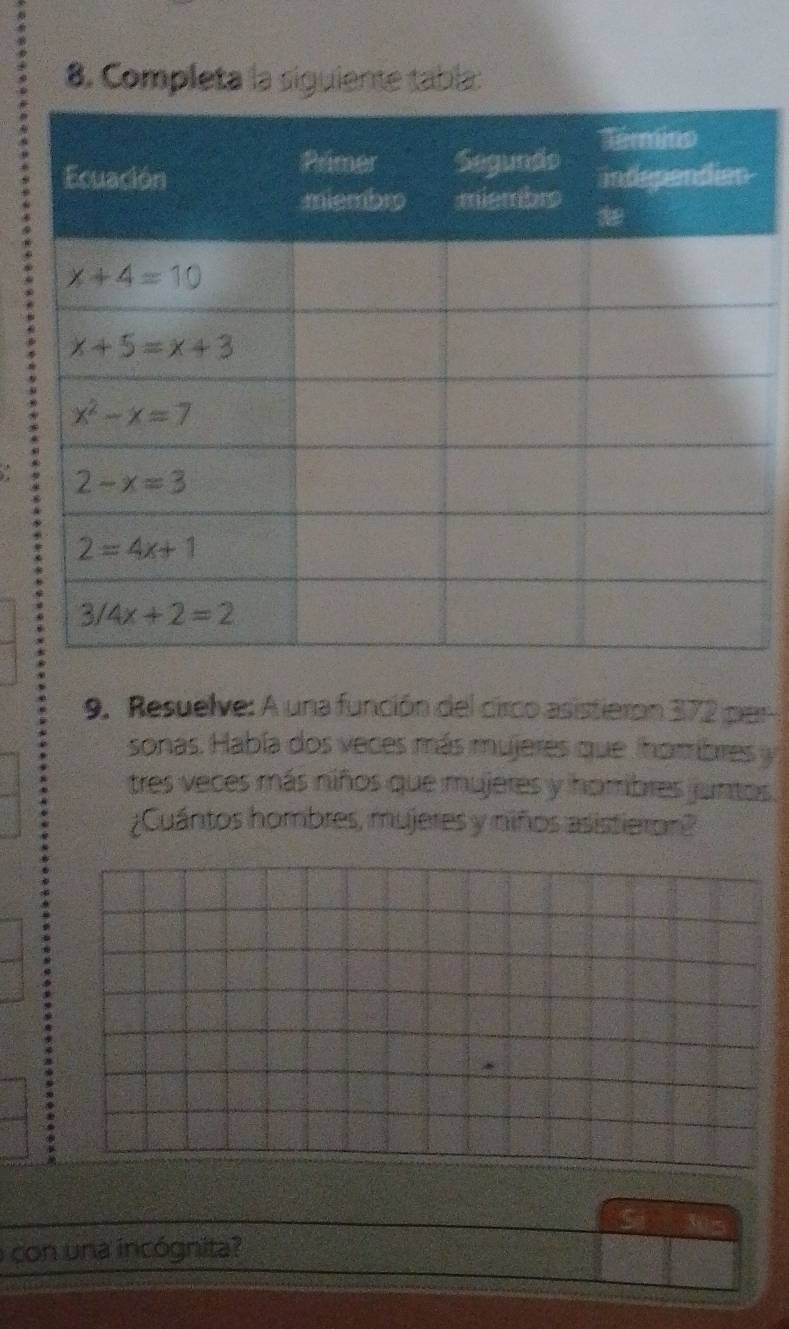 8. Completa la siguiente tabla:
Ecuación
Primer miembro
Segundo miembro
Término independien-
te
x + 4 = 10
x + 5 = x + 3
x² - x = 7
2 - x = 3
2 = 4x + 1
3/4x + 2 = 2
9. Resuelve: A una función del circo asistieron 372 per-
sonas. Había dos veces más mujeres que hombres y
tres veces más niños que mujeres y hombres juntos.
¿Cuántos hombres, mujeres y niños asistieron?
con una incógnita?